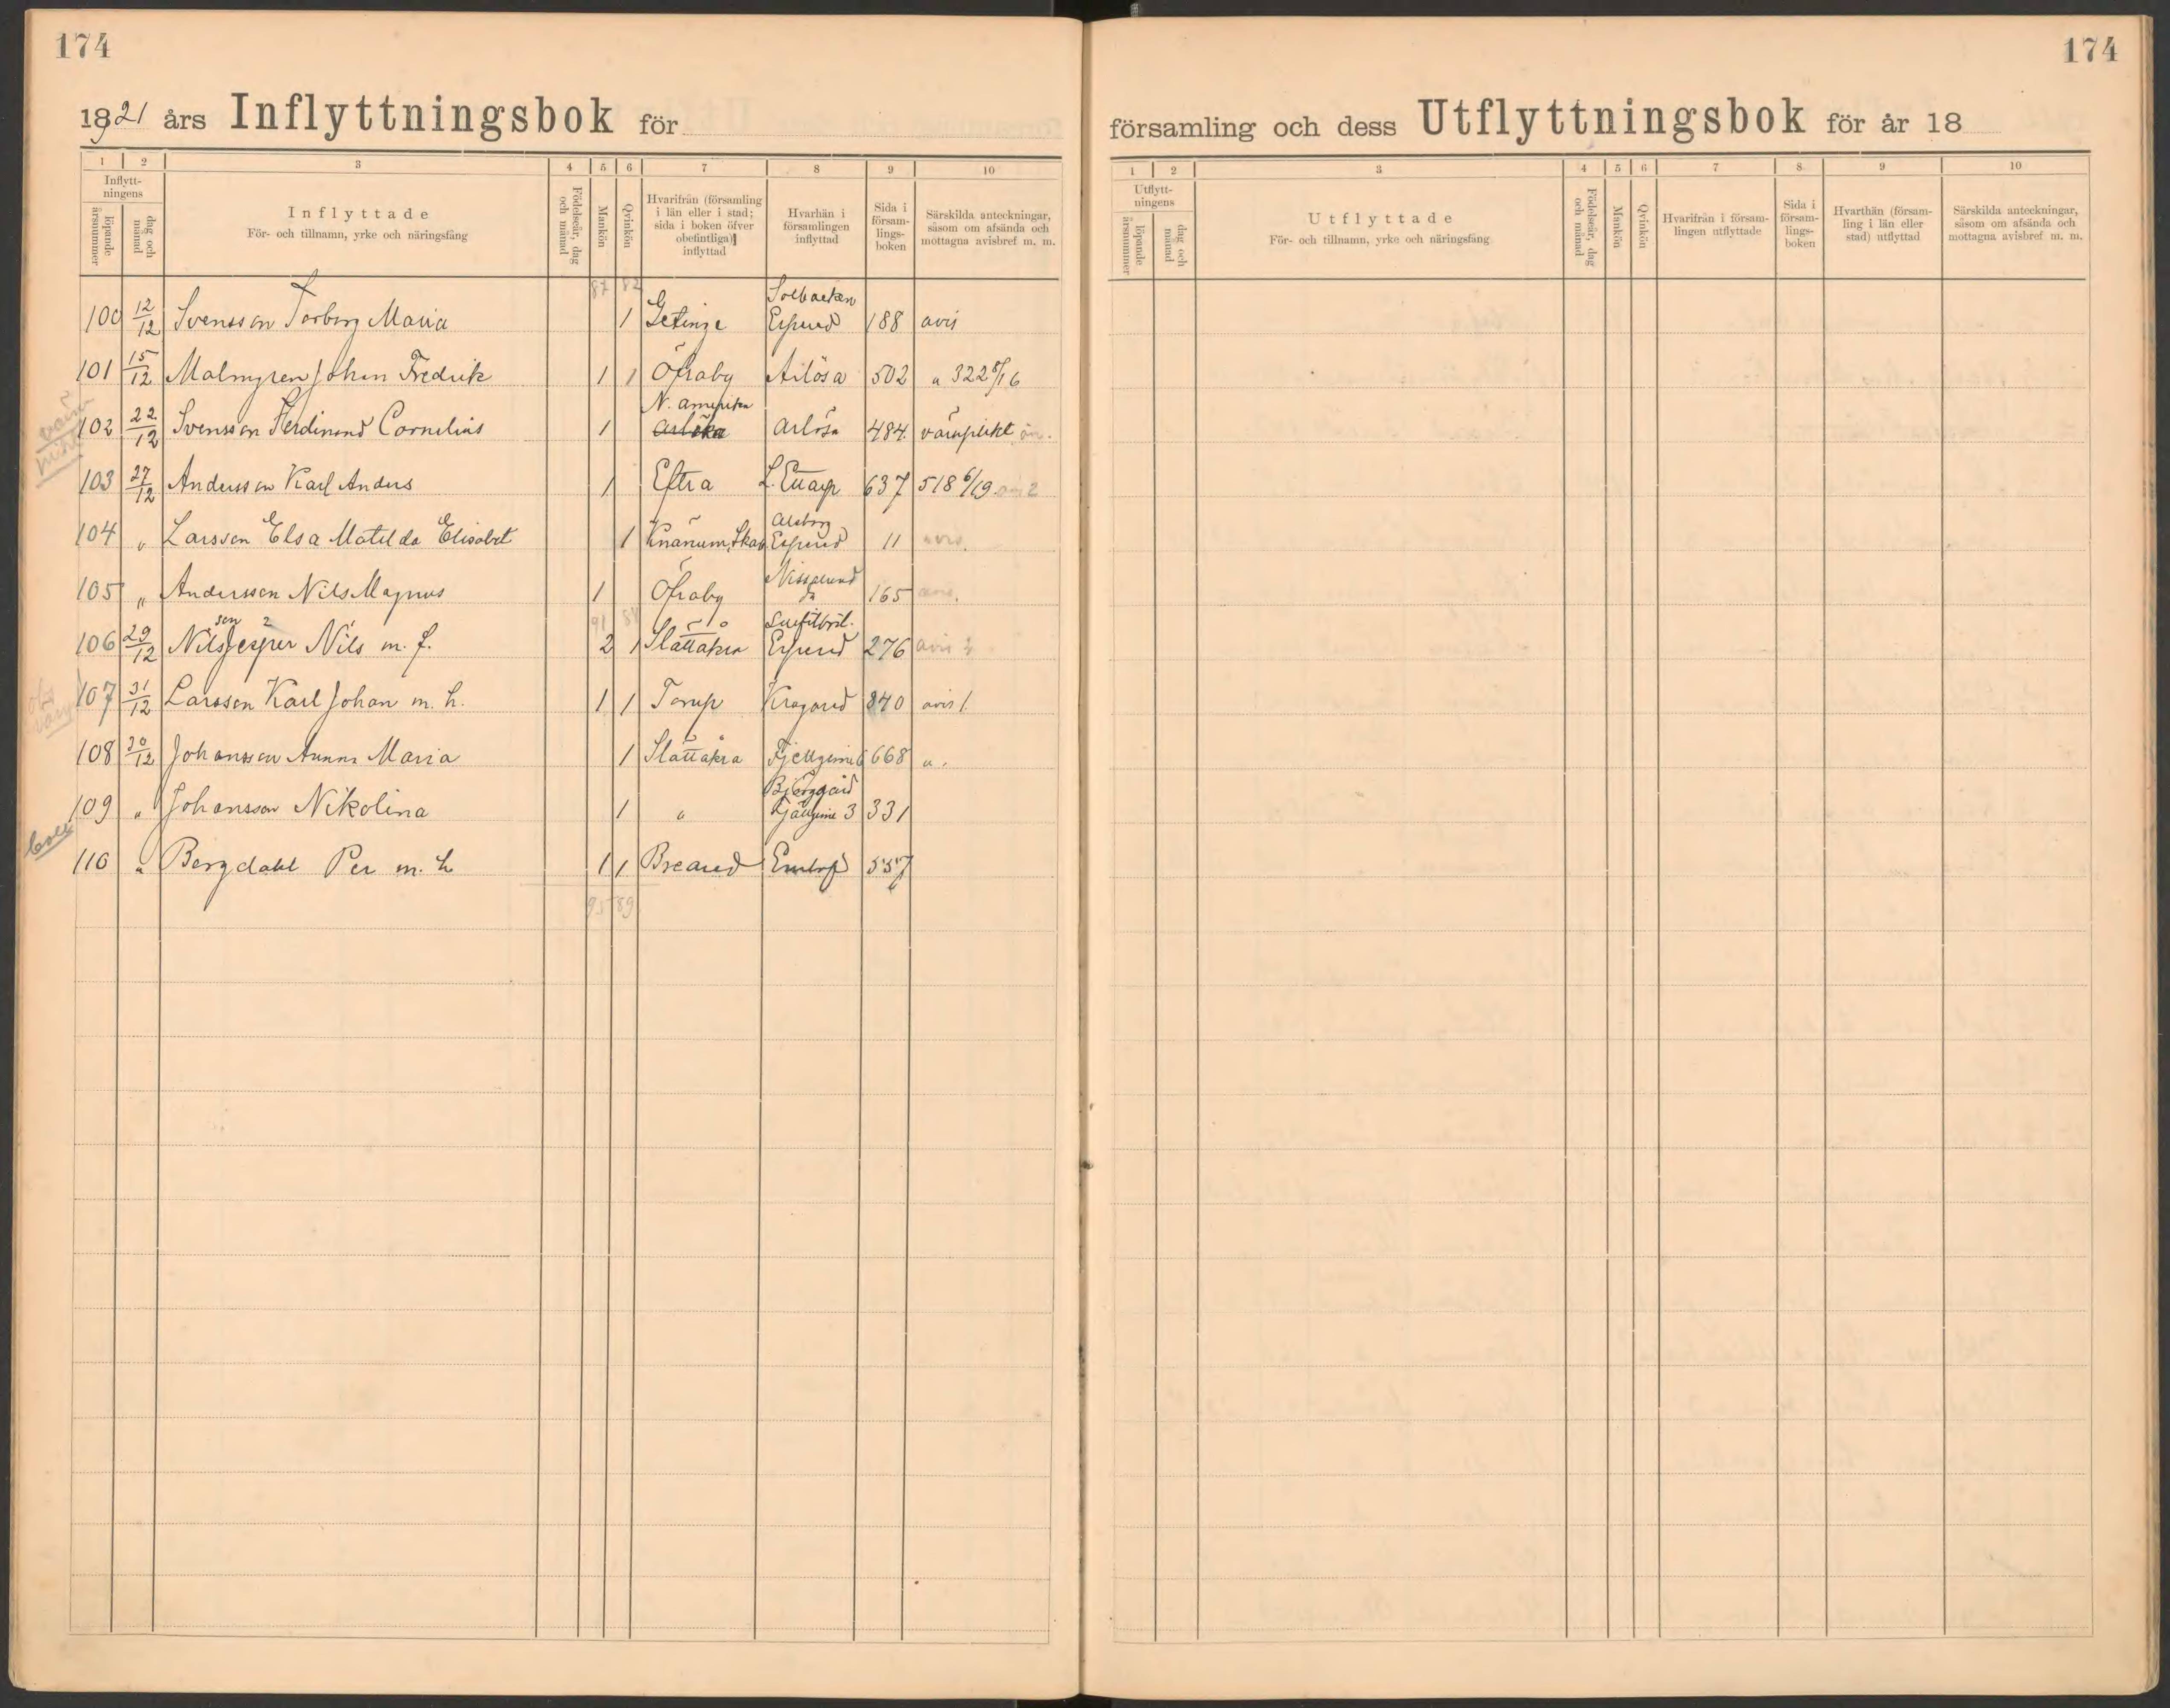 174
1921 års Inflyttningsbok för
1 2 3 4 5 6 7 8 9 10
Inflytt-
ningens
löpande årsnummer
dag och månad
Inflyttade
För- och tillnamn, yrke och näringsfång
Födelseår, dag och månad
Mankön
Qvinkön
Hvarifrån (församling i län eller i stad; sida i boken öfver obefintliga) inflyttad
Hvarhän i församlingen inflyttad
Sida i försam-lings-boken
Särskilda anteckningar, såsom om afsända och mottagna avisbref m. m.
87 82
100 12/12 Svensson Torborg Maria 1 Getinge Solbacken Esered 188 avis
101 15/12 Malmgren Johan Fredrik 1 1 Öfraby Arlösa 502 a 322 8/16
102 22/12 Svensson Ferdinand Cornelius 1 N. amerika Arlösa 484 värnplikt
103 27/12 Andersson Karl Anders 1 Eftra 637 518 6/19
104 " Larsson Elsa Matilda Elisabet 1 Skar 11 avis
105 " Andersson Nils Magnus 1 Öfraby 165 avis
91 84
106 29/12 Nilsson Jesper Nils m. f. 2 1 Slättåkra 276 avis
107 31/12 Larsson Karl Johan m. h. 1 1 Torup Kragared 840 avis 1
108 30/12 Johansson Anna Maria 1 Slättåkra 668 a.
109 " Johansson Nikolina 1 " Bjerggård 3 331
110 " Bergdahl Per m. h 1 1 Breared 557
95 89
174
församling och dess Utflyttningsbok för år 18
1 2 3 4 5 6 7 8 9 10
Utflytt-
ningens
löpande årsnummer
dag och månad
Utflyttade
För- och tillnamn, yrke och näringsfång
Födelseår, dag och månad
Mankön
Qvinkön
Hvarifrån i försam-lingen utflyttade
Sida i försam-lings-boken
Hvarthän (försam-ling i län eller stad) utflyttad
Särskilda anteckningar, såsom om afsända och mottagna avisbref m. m.